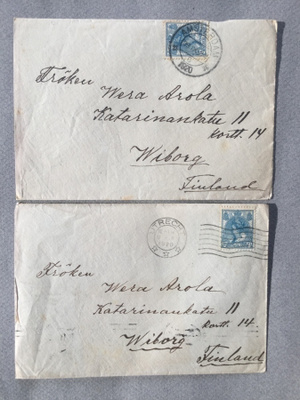 1920
Fröken
Wera Arola
Katarinankatu 11
kortt. 14
Wiborg
Finland
UTRECHT
Fröken
Wera Arola
Katarinankatu 11
kortt. 14
Wiborg
Finland